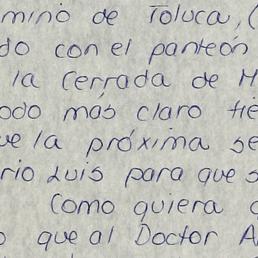 mino de Toluca, (
do con el panteón
la Cerrada de H
odo más claro tie
ue la próxima se
rio Luis para que s
Como quiera
o que al Doctor A